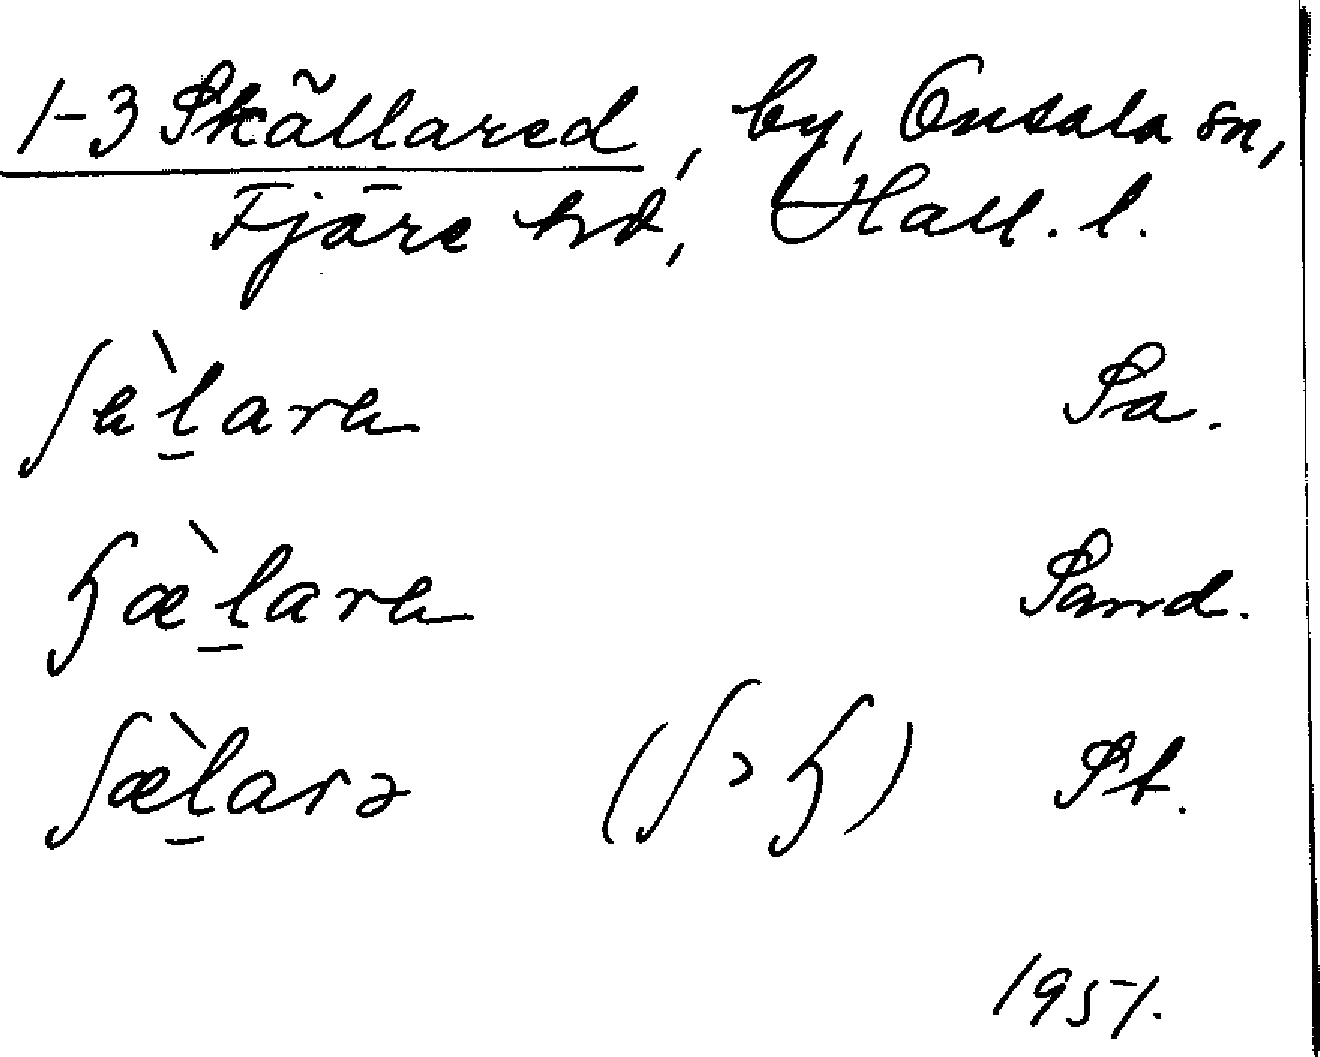 1-3 Skällared, by, Onsala sn,
Fjäre hd, Hall. l.
ʃɐ̀l̠arɐ Sa.
ɧæ̀l̠arɐ Sand.
ʃæ̀l̠arə (ʃ > ɧ) St.
1951.